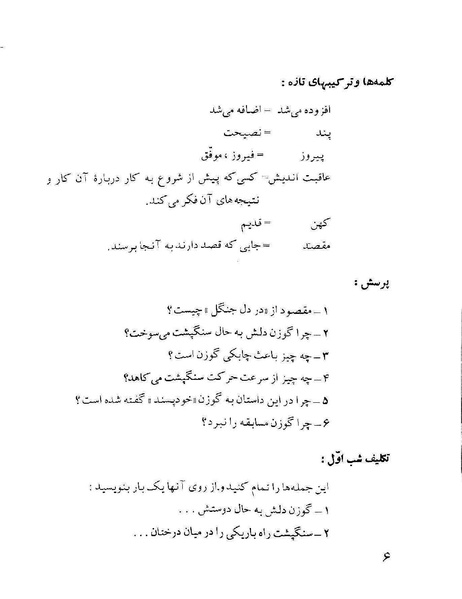 کلمه‌ها و ترکیبهای تازه :
افزوده می‌شد = اضافه می‌شد
پند = نصیحت
پیروز = فیروز ، موفّق
عاقبت اندیش = کسی که پیش از شروع به کار دربارهٔ آن کار و
نتیجه‌های آن فکر می‌کند.
کهن = قدیم
مقصد = جایی که قصد دارند به آنجا برسند.
پرسش :
۱ – مقصود از «در دل جنگل» چیست؟
۲ – چرا گوزن دلش به حال سنگپشت می‌سوخت؟
۳ – چه چیز باعث چابکی گوزن است؟
۴ – چه چیز از سرعت حرکت سنگپشت می‌کاهد؟
۵ – چرا در این داستان به گوزن «خودپسند» گفته شده است؟
۶ – چرا گوزن مسابقه را نبرد؟
تکلیف شب اوّل :
این جمله‌ها را تمام کنید و از روی آنها یک بار بنویسید :
۱ – گوزن دلش به حال دوستش . . .
۲ – سنگپشت راه باریکی را در میان درختان . . .
۶